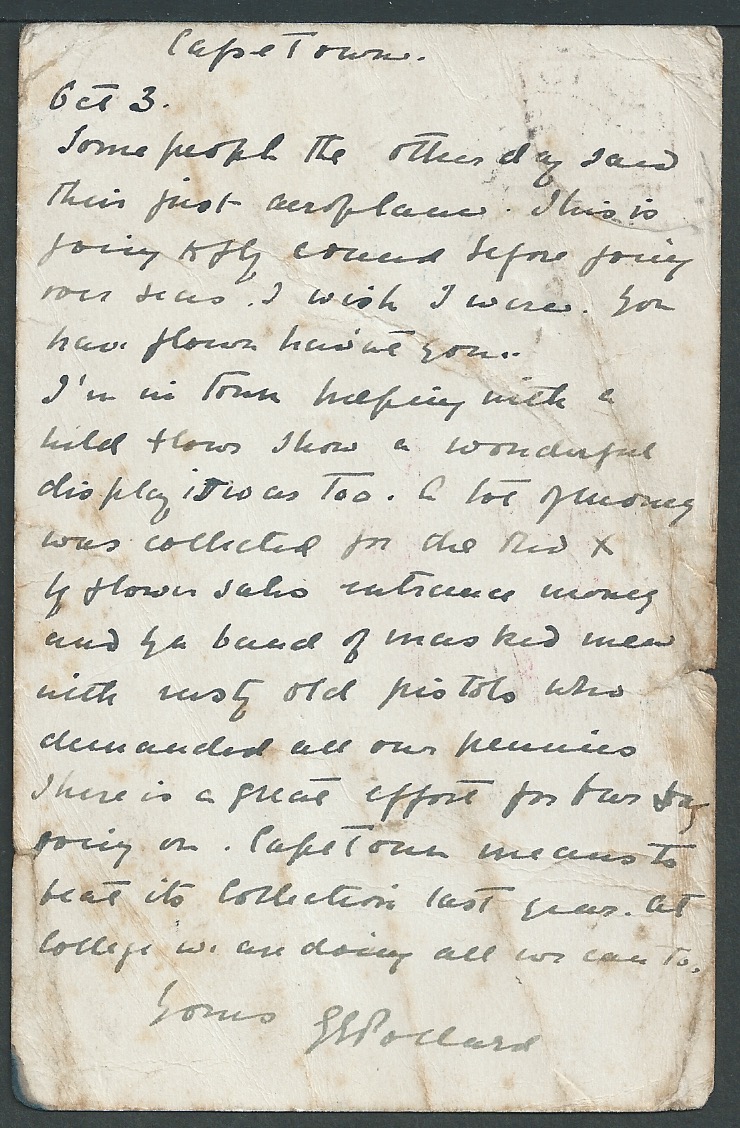 Cape Town.
Oct 3.
Some people the other day saw
their first aeroplane. This is
going to fly round before going
over seas. I wish I were. You
have flown hav'nt you..
I'm in town helping with a
wild flower show a wonderful
display it was too. A lot of money
was collected for the Red X
by flower sales entrance money
and by a band of masked men
with rusty old pistols who
demanded all our pennies
There is a great effort for Our Day
going on. Cape Town means to
beat its collection last year. At
College we are doing all we can to.
Yours Pollard